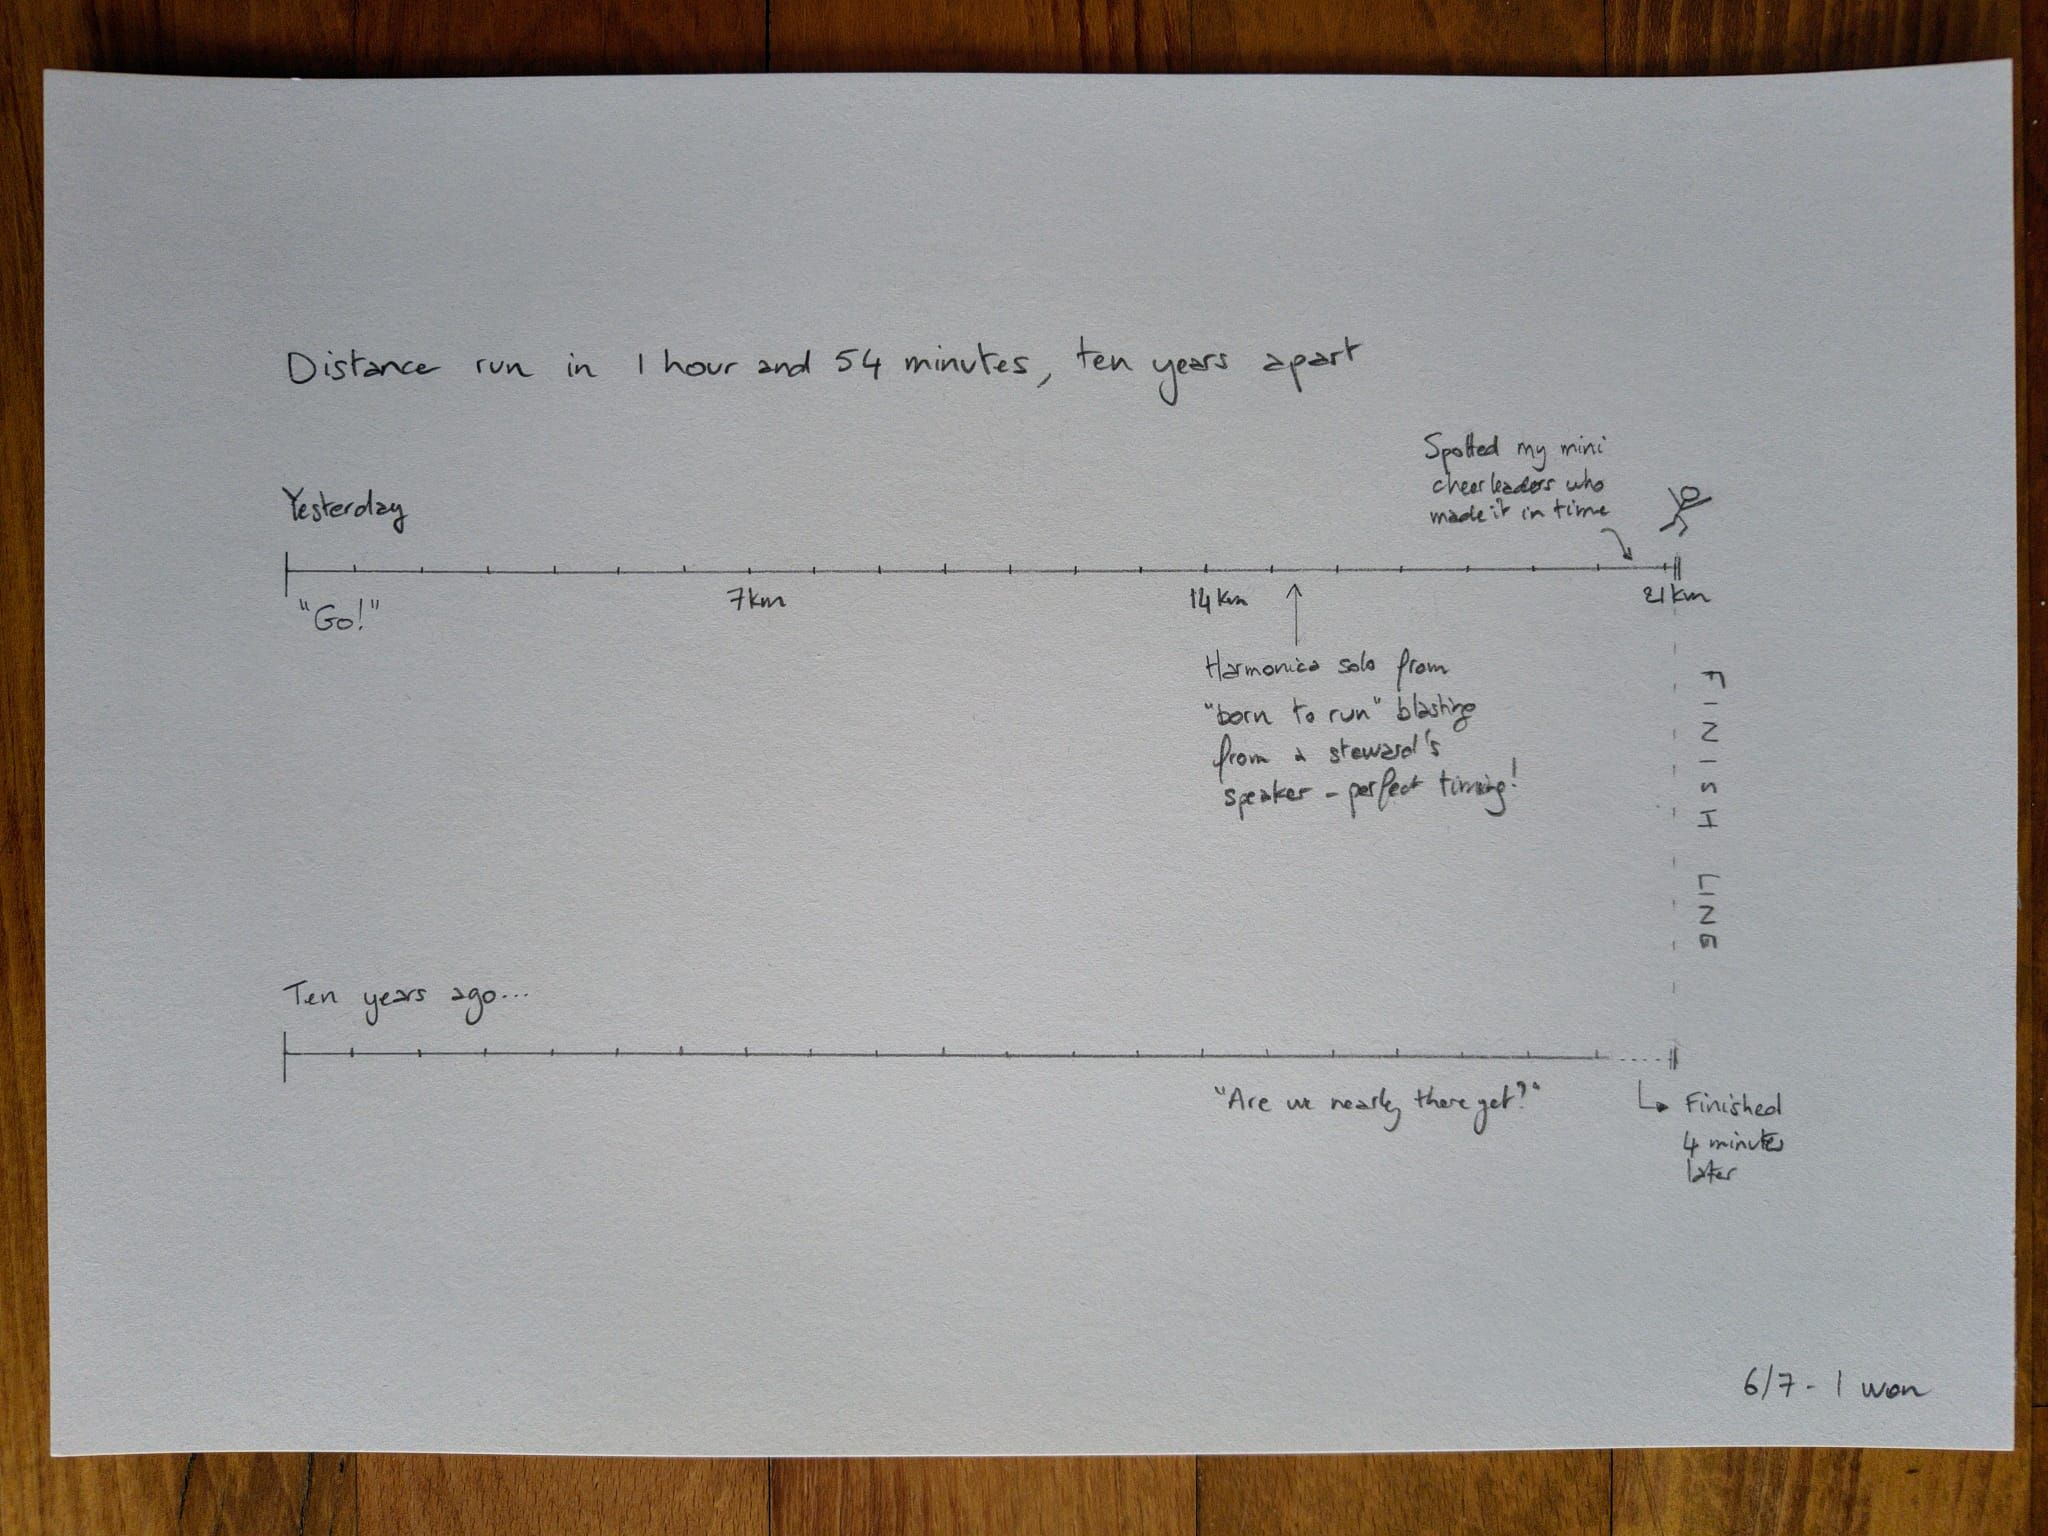 Distance run in 1 hour and 54 minutes, ten years apart
Spotted my mini
cheerleaders who
made it in time
Yesterday
"Go!"
7km
14 km
21 km
Harmonica solo from
"born to run" blasting
from a steward's
speaker - perfect timing!
FINISH LINE
Ten years ago...
"Are we nearly there yet?"
Finished
4 minutes
later
6/7 - I won